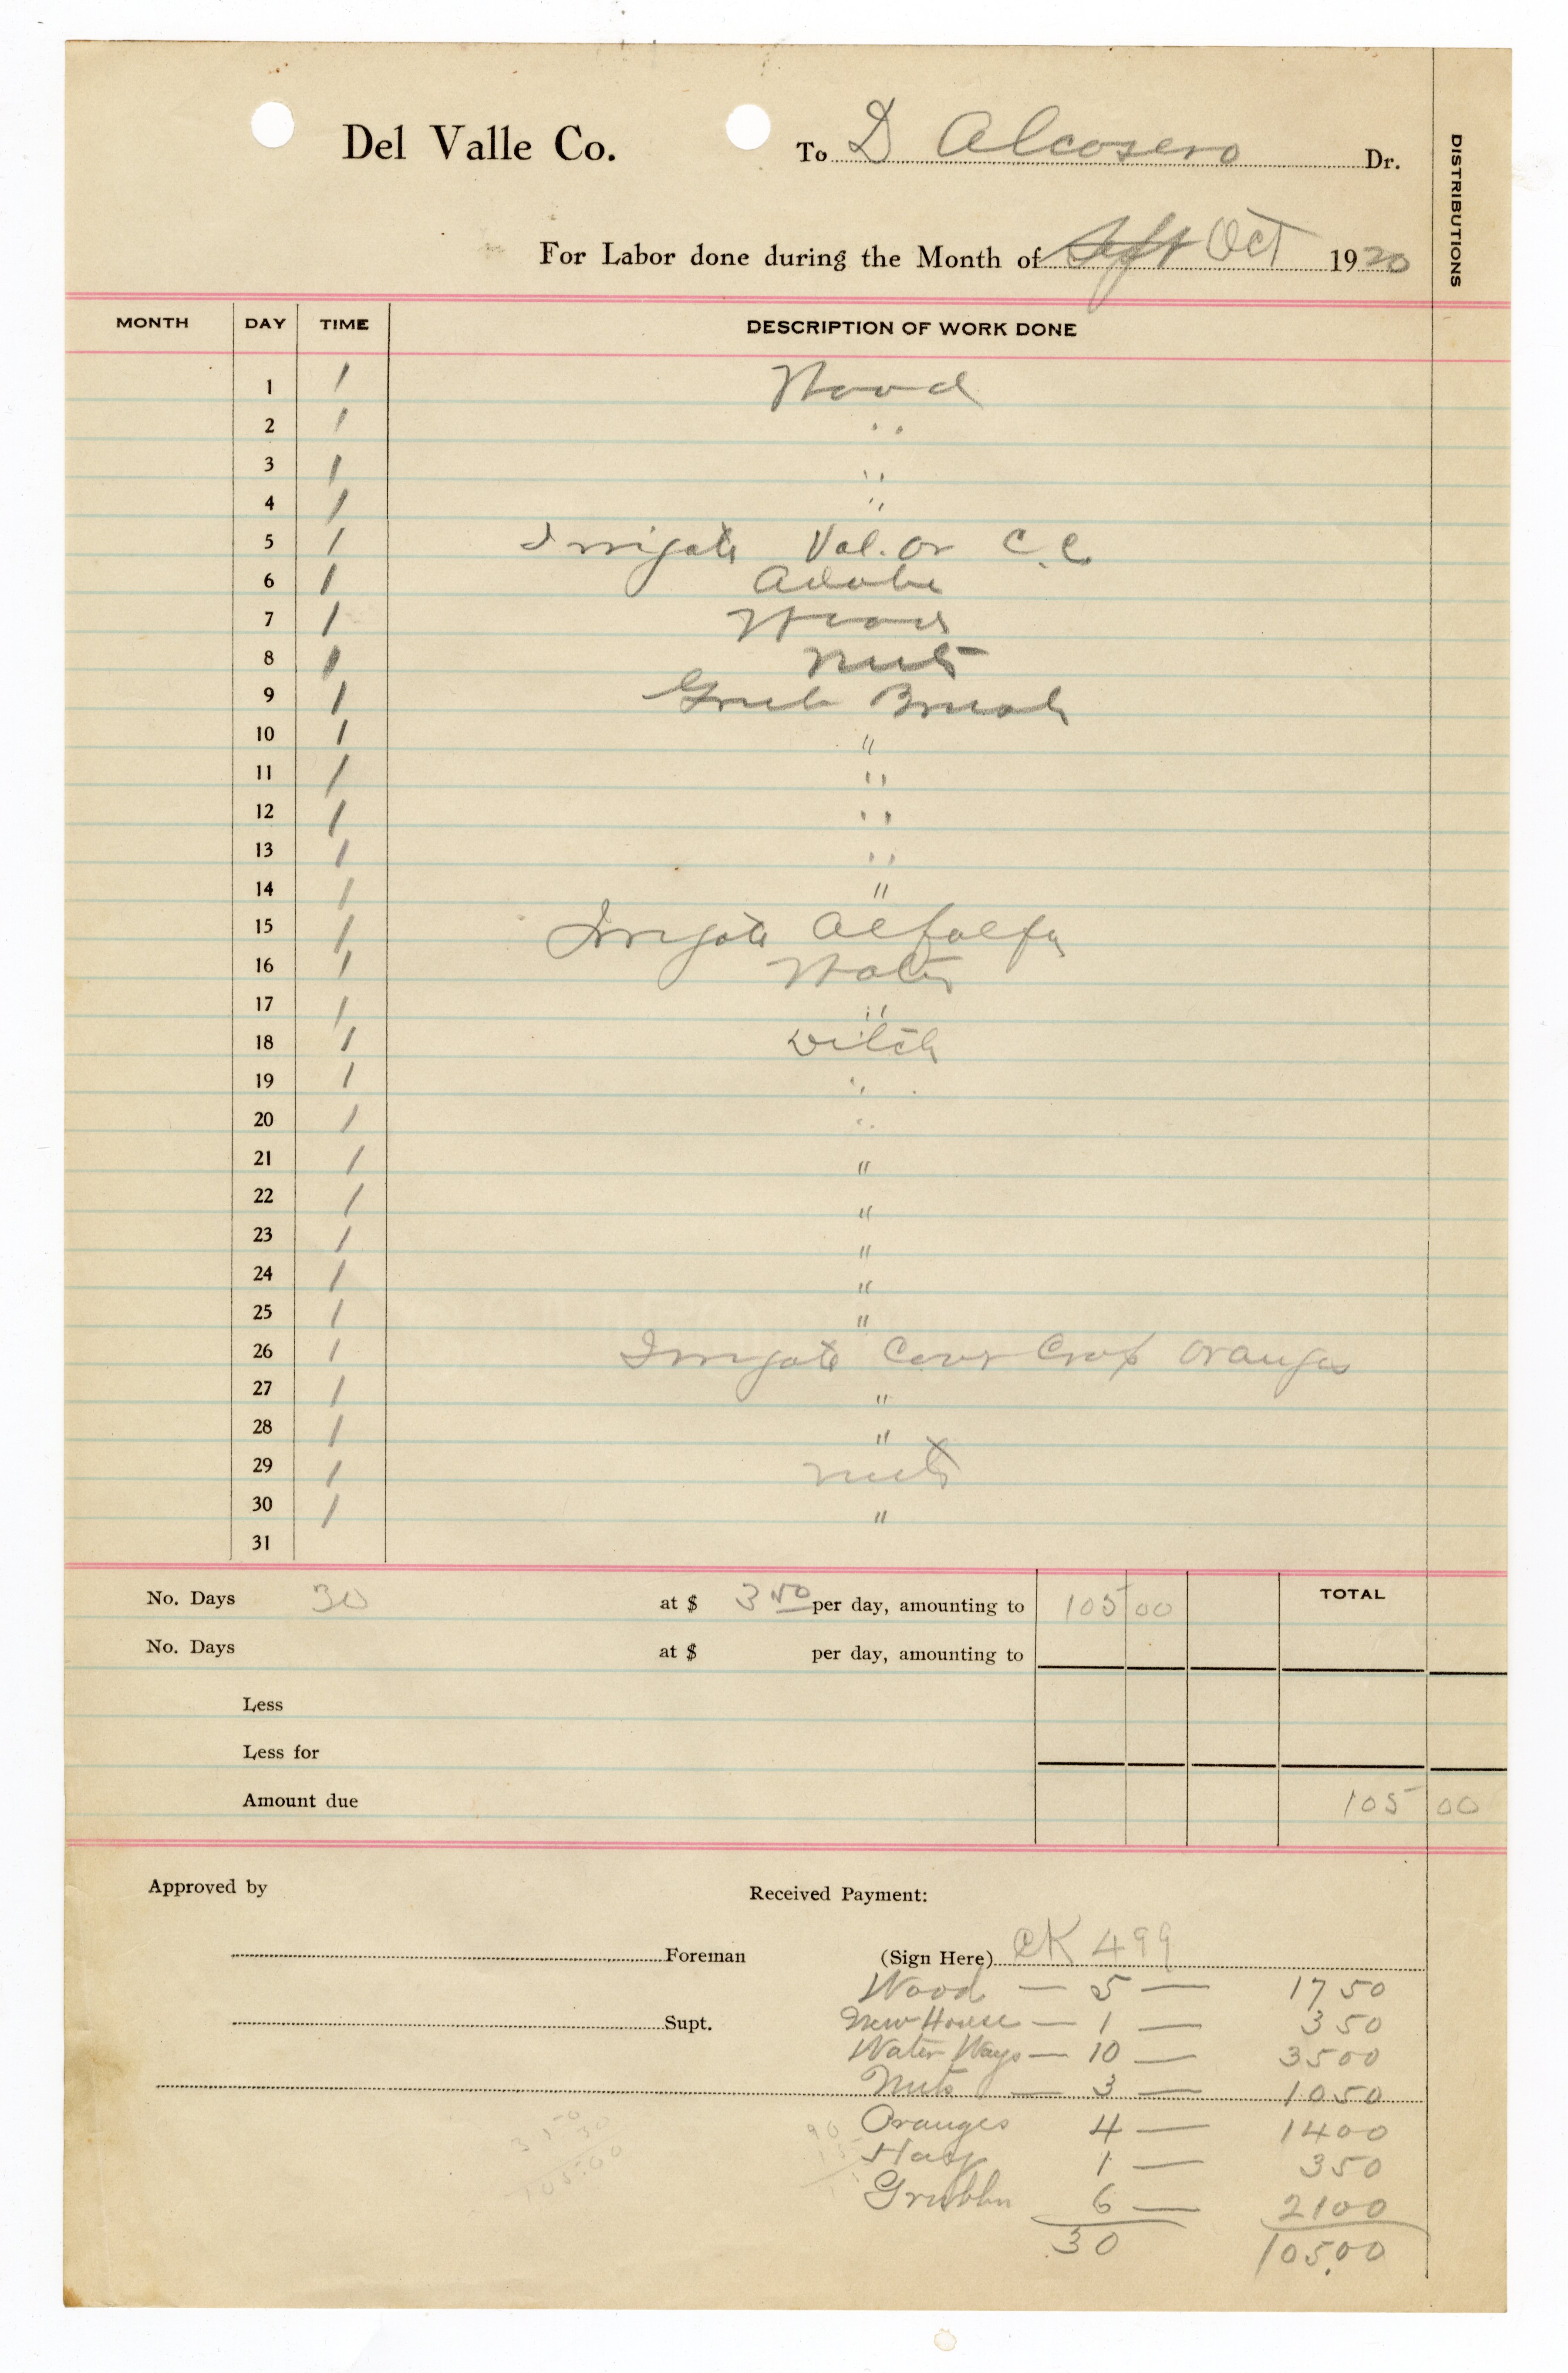 Del Valle Co. To D Alcosero Dr.
DISTRIBUTIONS
For Labor done during the Month of Sept Oct 1920
MONTH DAY TIME DESCRIPTION OF WORK DONE
1 1 Wood
2 1 "
3 1 "
4 1 "
5 1 Irrigate Val. Or C.C
6 1 Adobe
7 1 Wood
8 1 Nuts
9 1 Grub Brush
10 1 "
11 1 "
12 1 "
13 1 "
14 1 "
15 1 Irrigate Alfalfa
16 1 Water
17 1 "
18 1 Ditch
19 1 "
20 1 "
21 1 "
22 1 "
23 1 "
24 1 "
25 1 "
26 1 Irrigate Cover Crop Oranges
27 1 "
28 1 "
29 1 Nuts
30 1 "
31
No. Days 30 at $ 3 50 per day, amounting to 105 00 TOTAL
No. Days at $ per day, amounting to
Less
Less for
Amount due 105 00
Approved by Received Payment:
Foreman (Sign Here) CK 499
Wood — 5 — 17 50
Supt. New House — 1 — 3 50
Water Ways — 10 — 35 00
Nuts — 3 — 10 50
Oranges 4 — 14 00
Hay 1 — 3 50
Grubbn 6 — 21 00
30 105.00
3 50
30
105.00